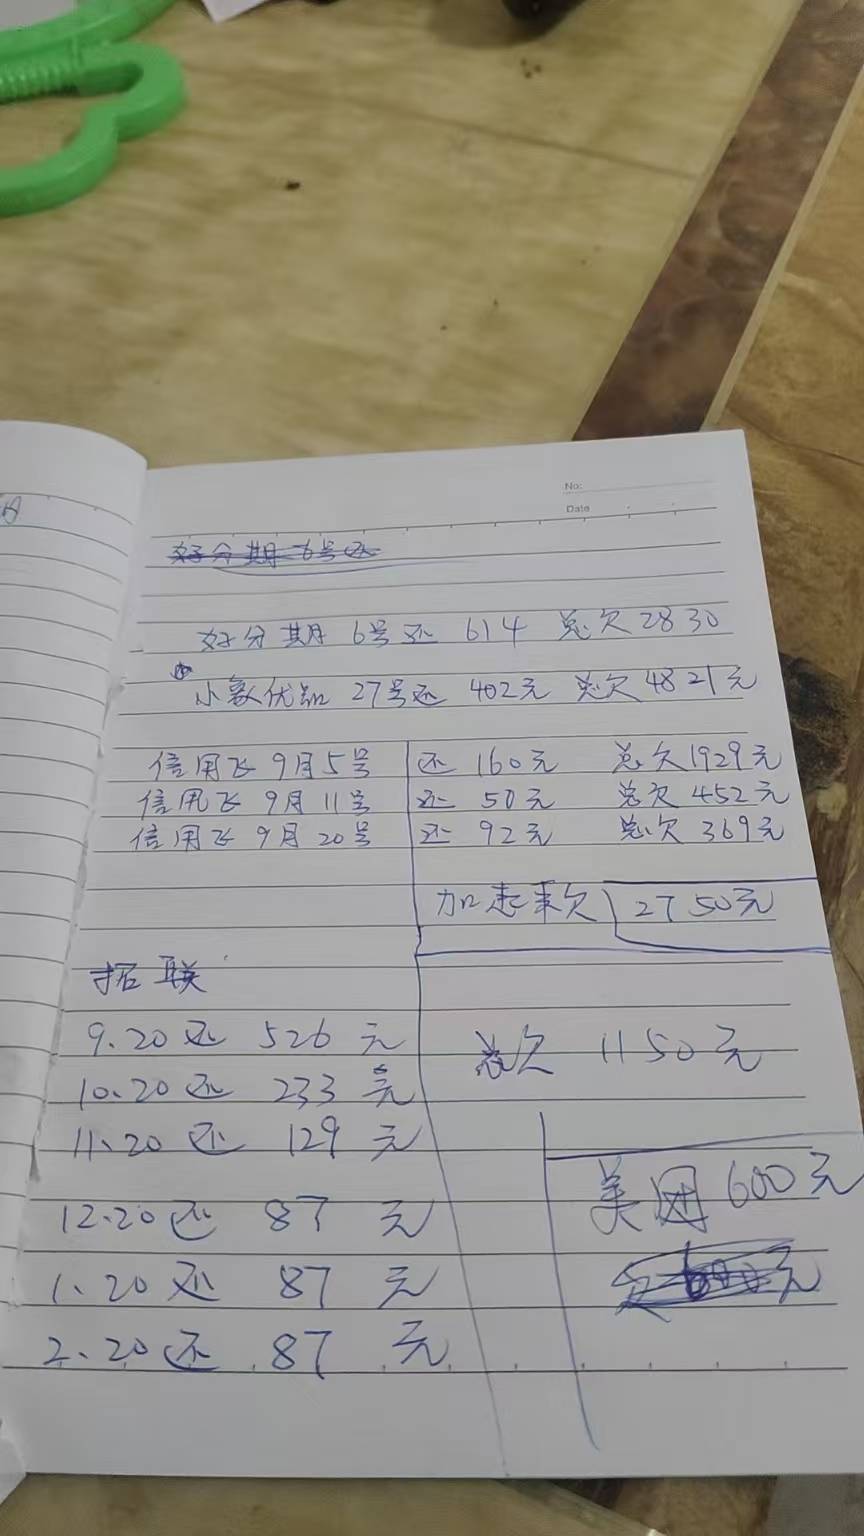 No:
Date
好分期6号还
好分期 6号还 614 总欠2830
小象优品 27号还 402元 总欠4821元
信用飞 9月5号 还 160元 总欠1929元
信用飞 9月11号 还 50元 总欠 452元
信用飞 9月20号 还 92元 总欠 369元
加起来欠 2750元
招联
9.20还 526元
总欠 1150元
10.20还 233元
11.20还 129元
美团600元
12.20还 87元
1.20还 87元
2.20还 87元